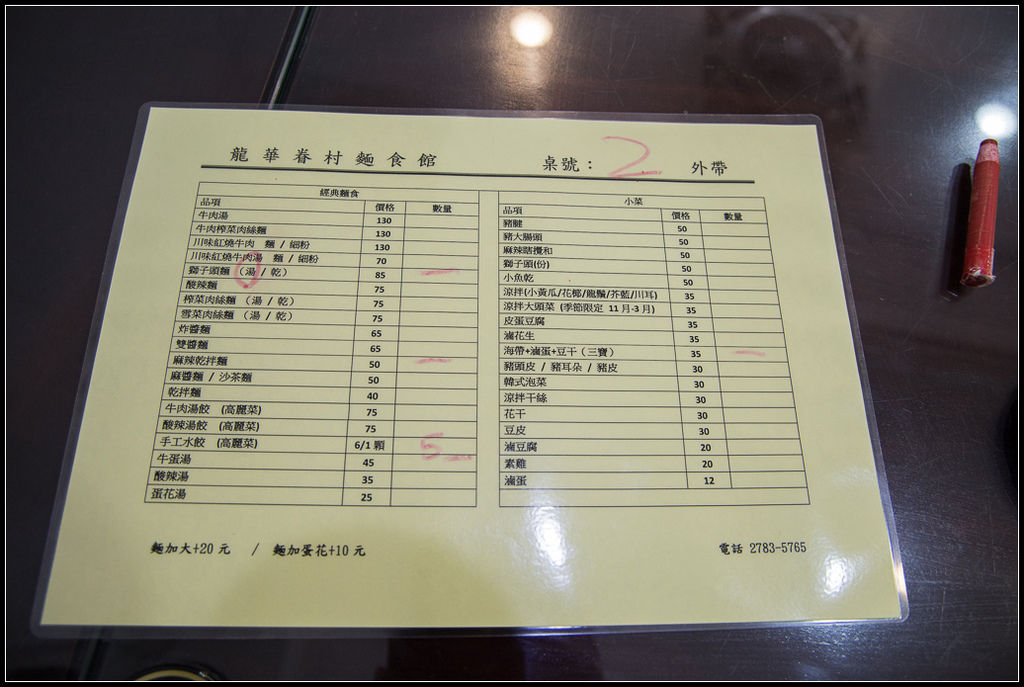 龍華眷村麵食館 桌號：2 外帶
經典麵食
品項 價格 數量
牛肉湯 130
牛肉榨菜肉絲麵 130
川味紅燒牛肉 麵 / 細粉 130
川味紅燒牛肉湯 麵 / 細粉 70
獅子頭麵 (湯 / 乾) 85 一
酸辣麵 75
榨菜肉絲麵 (湯 / 乾) 75
雪菜肉絲麵 (湯 / 乾) 75
炸醬麵 65
雙醬麵 65
麻辣乾拌麵 50 一
麻醬麵 / 沙茶麵 50
乾拌麵 40
牛肉湯餃 (高麗菜) 75
酸辣湯餃 (高麗菜) 75
手工水餃 (高麗菜) 6/1 顆 5
牛蛋湯 45
酸辣湯 35
蛋花湯 25
小菜
品項 價格 數量
豬腱 50
豬大腸頭 50
麻辣瞎攪和 50
獅子頭(份) 50
小魚乾 50
涼拌(小黃瓜/花椰/龍鬚/芥藍/川耳) 35
涼拌大頭菜 (季節限定 11月-3月) 35
皮蛋豆腐 35
滷花生 35
海帶+滷蛋+豆干 (三寶) 35 一
豬頭皮 / 豬耳朵 / 豬皮 30
韓式泡菜 30
涼拌干絲 30
花干 30
豆皮 30
滷豆腐 20
素雞 20
滷蛋 12
麵加大+20 元 / 麵加蛋花+10 元
電話 2783-5765